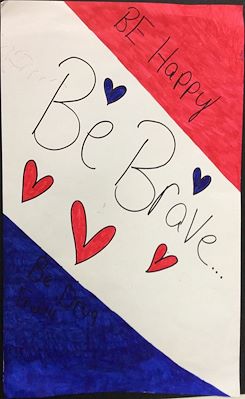 BE Happy
Be
Brave...
Be Drug